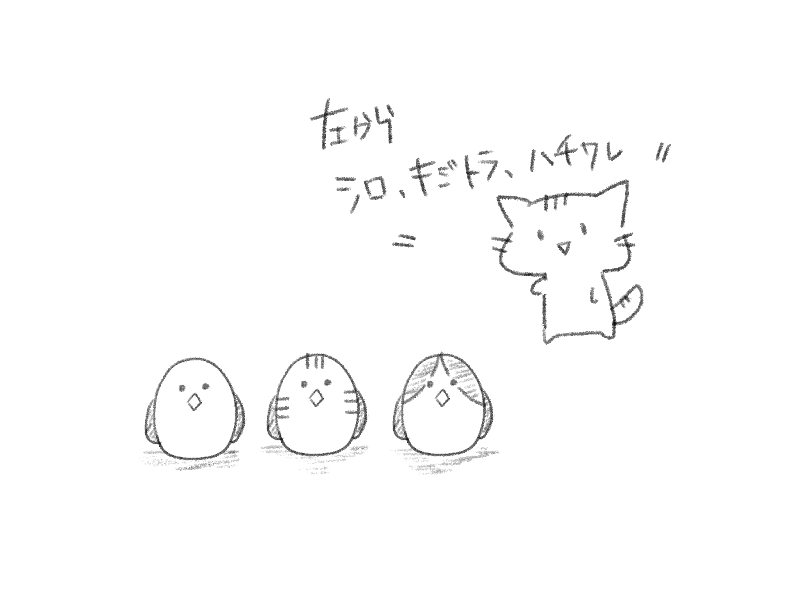 左から
シロ、キジトラ、ハチワレ